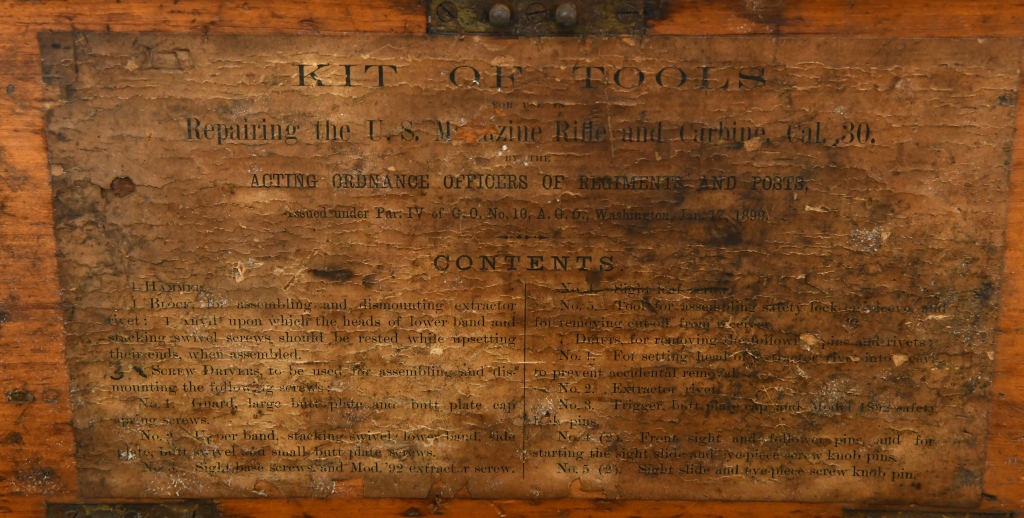 KIT OF TOOLS
FOR USE IN
Repairing the U. S. Magazine Rifle and Carbine, Cal. .30.
BY THE
ACTING ORDNANCE OFFICERS OF REGIMENTS AND POSTS,
Issued under Par. IV of G. O. No. 10, A. G. O., Washington, Jan. 17, 1899.
CONTENTS
1 HAMMER.
1 BLOCK, for assembling and dismounting extractor
rivet; 1 Anvil upon which the heads of lower band and
stacking swivel screws should be rested while upsetting
their ends, when assembled.
SCREW DRIVERS, to be used for assembling and dis-
mounting the following screws:
No. 1. Guard, large butt plate and butt plate cap
spring screws.
No. 2. Upper band, stacking swivel, lower band, side
plate, butt swivel and small butt plate screws.
No. 3. Sight base screws, and Mod. '92 extractor screw.
No. 4. Sight leaf screw.
No. 5. Tool for assembling safety lock sleeve, and
for removing cut-off from receiver.
7 DRIFTS, for removing the following pins and rivets:
No. 1. For setting head of extractor rivet into
to prevent accidental removal.
No. 2. Extractor rivet.
No. 3. Trigger, butt plate cap and Model 1892 safety
lock pins.
No. 4 (2). Front sight and follower pins, and for
starting the sight slide and eye-piece screw knob pins.
No. 5 (2). Sight slide and eye-piece screw knob pin.